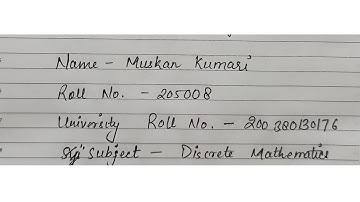 Name - Muskan Kumari
Roll No. - 205008
University Roll No. - 200380130176
Subject - Discrete Mathematics